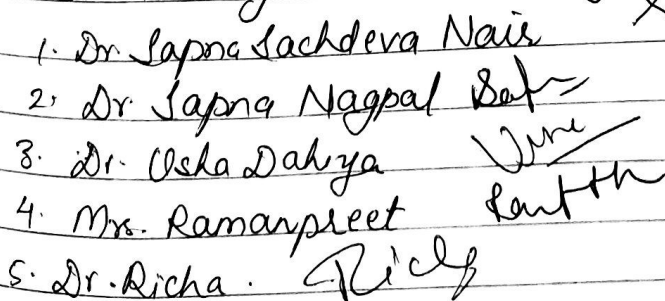 1. Dr. Sapna Sachdeva Nair
2. Dr. Sapna Nagpal
3. Dr. Usha Dahiya
4. Mrs. Ramanpreet
5. Dr. Richa. Richa